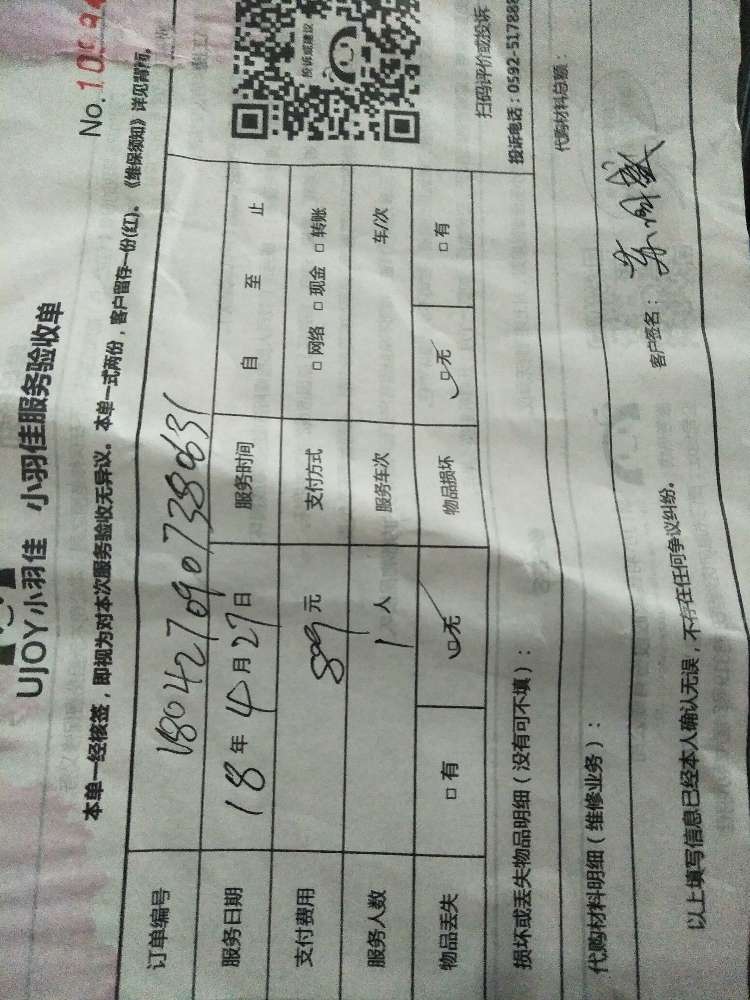 UJOY小羽佳 小羽佳服务验收单
No.109
本单一经核签，即视为对本次服务验收无异议。本单一式两份，客户留存一份(红)。《维保须知》详见背面。
订单编号 1804270907380631
服务日期 18年4月27日 服务时间 自 至 止
支付费用 89元 支付方式 □网络 □现金 □转账
服务人数 1人 服务车次 车/次
物品丢失 □有 □无 物品损坏 □无 □有
投诉或建议
扫码评价或投诉
投诉电话：0592-517888
损坏或丢失物品明细（没有可不填）：
代购材料明细（维修业务）： 代购材料总额：
以上填写信息已经本人确认无误，不存在任何争议纠纷。
客户签名：